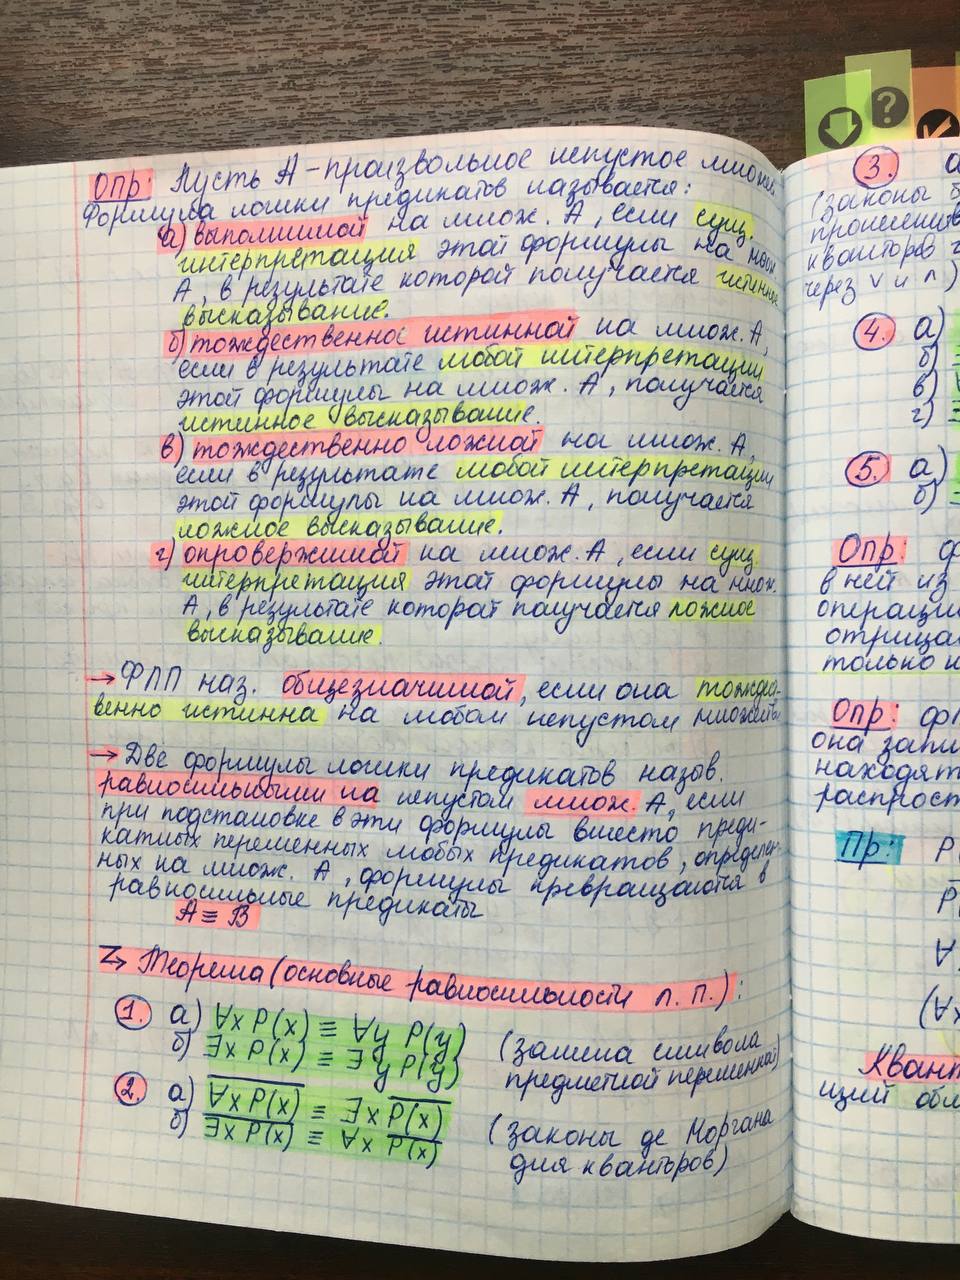 Опр: Пусть А – произвольное непустое множ.
Формула логики предикатов называется:
а) выполнимой на множ. А, если сущ.
интерпретация этой формулы на множ
А, в результате которой получается истинное
высказывание.
б) тождественно истинной на множ. А,
если в результате любой интерпретации
этой формулы на множ. А, получается
истинное высказывание.
в) тождественно ложной на множ. А,
если в результате любой интерпретации
этой формулы на множ. А, получается
ложное высказывание.
г) опровержимой на множ. А, если сущ.
интерпретация этой формулы на множ.
А, в результате которой получается ложное
высказывание.
→ ФЛП наз. общезначимой, если она тождест-
венно истинна на любом непустом множестве
→ Две формулы логики предикатов назыв.
равносильными на непустом множ. А, если
при подстановке в эти формулы вместо преди-
катных переменных любых предикатов, определен-
ных на множ. А, формулы превращаются в
равносильные предикаты
A ≡ B
Теорема (основные равносильности л. п.):
1. а) ∀x P(x) ≡ ∀y P(y) (замена символа
б) ∃x P(x) ≡ ∃y P(y) предметной переменной)
2. а) \overline{∀x P(x)} ≡ ∃x \overline{P(x)} (законы де Моргана
б) \overline{∃x P(x)} ≡ ∀x \overline{P(x)} для кванторов)
3. а
(законы
кванторов
через ∨ и ∧)
4. а)
б)
в)
г)
5. а)
б)
Опр: ф
в ней из
операции
отрица
только к
Опр: ФЛ
она запи
находят
распрост
Пр: P
P
∀
(∀x
Квант
щий обл